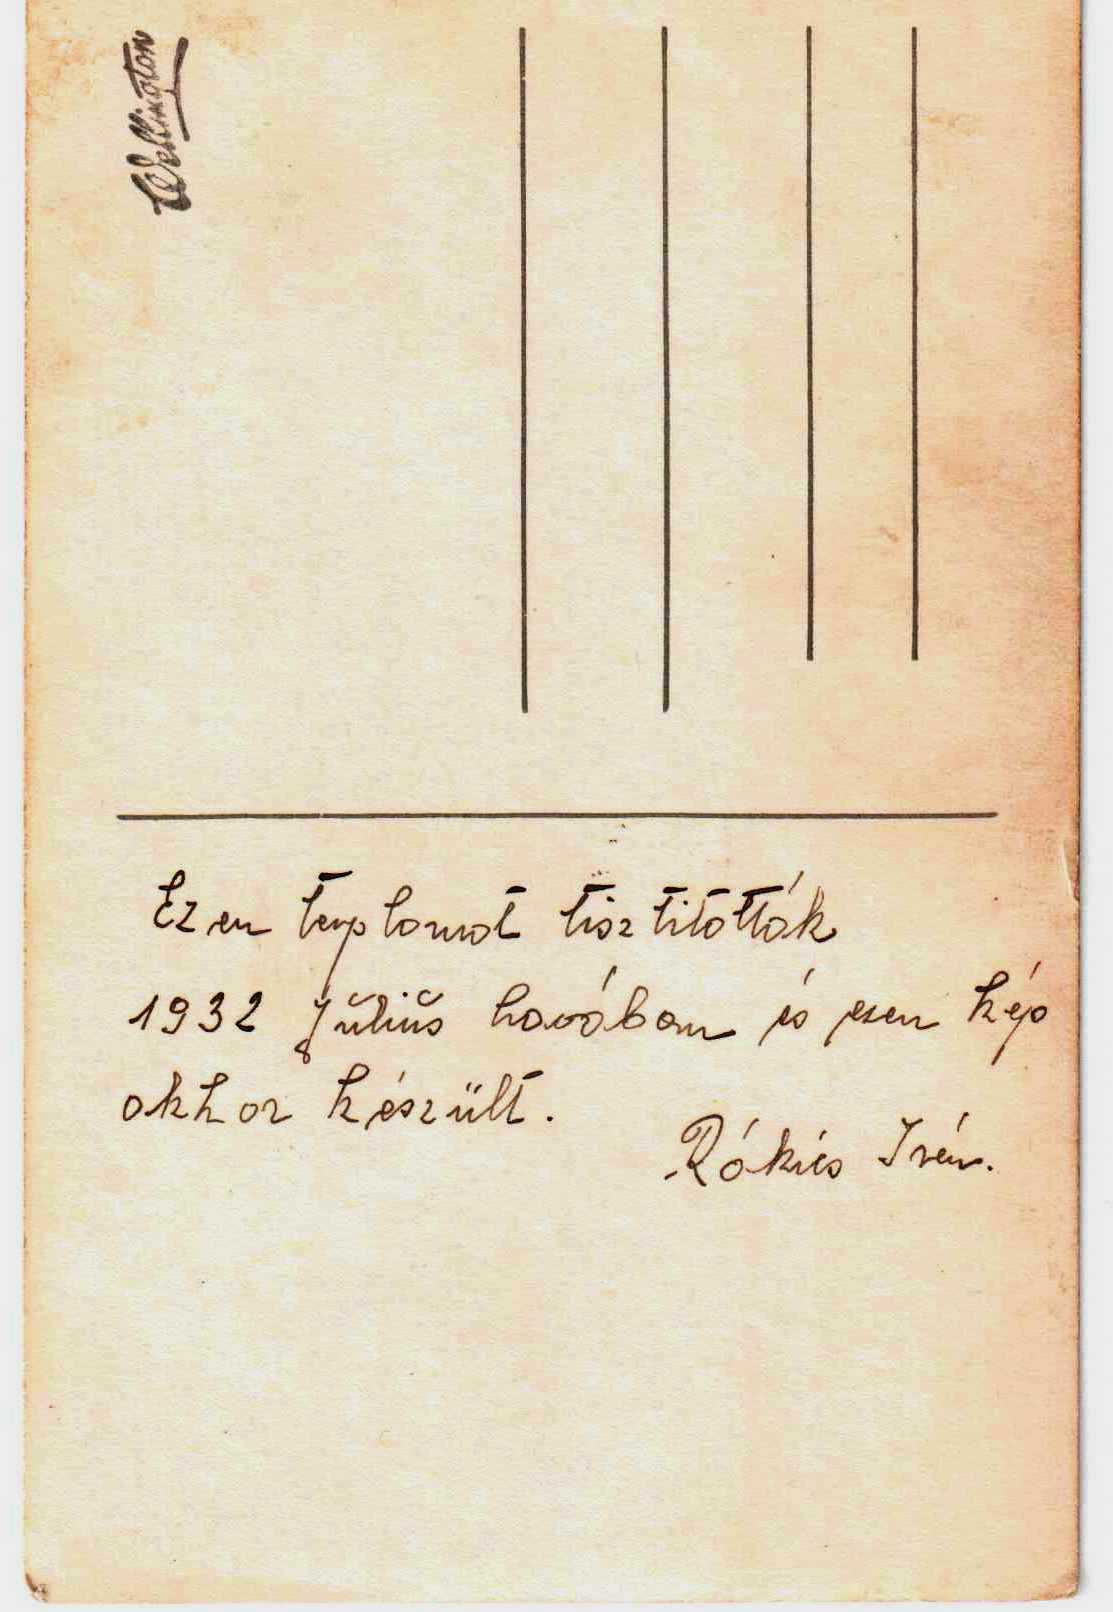 Wellington
Ezen templomot tisztitották
1932 Július havában és ezen kép
akkor készült.
Rókás Irén.